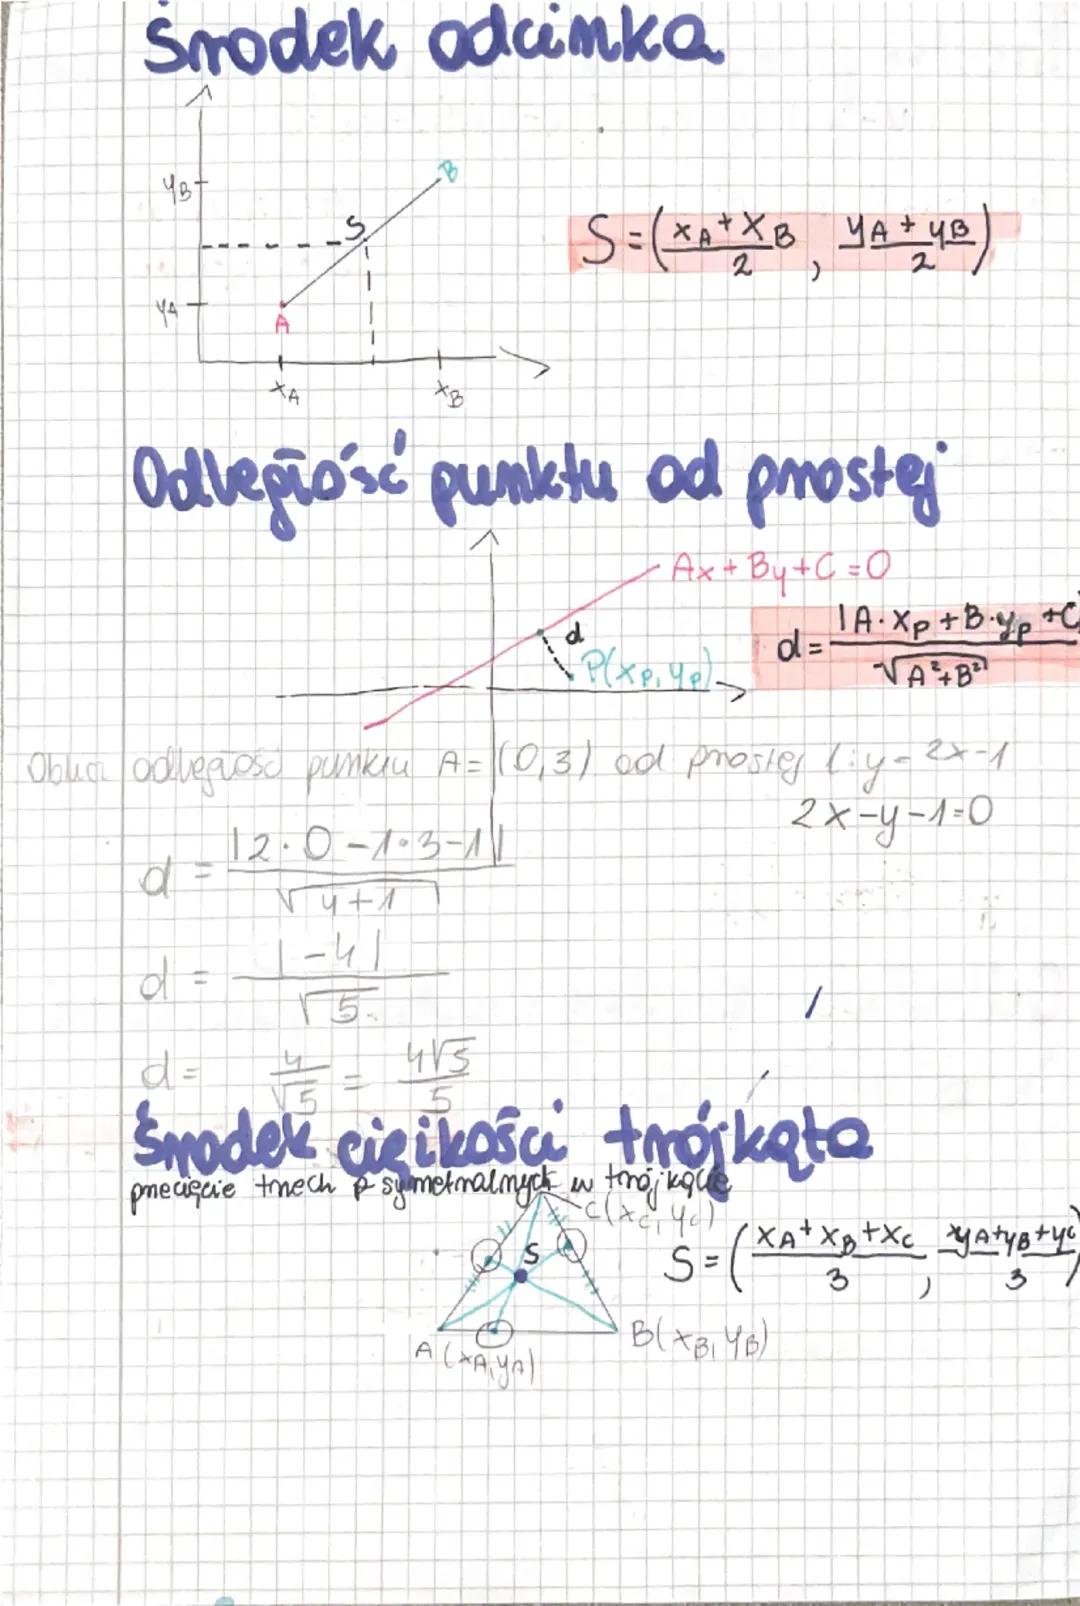 Środek odcinka
yB
B
S
S=(xA+xB/2, yA+yB/2)
yA
A
xA
xB
Odległość punktu od prostej
Ax+By+C=0
d
d=|A·xp+B·yp+C|/√A²+B²
P(xp, yp)
Oblicz odległość punktu A=(0,3) od prostej l:y=2x-1
2x-y-1=0
d=|2·0-1·3-1|/√4+1
d=|-4|/√5
d=4/√5=4√5/5
Środek ciężkości trójkąta
przecięcie trzech symetralnych w trójkącie
C(xC, yC)
S
S=(xA+xB+xC/3, yA+yB+yC/3)
A(xA, yA)
B(xB, yB)